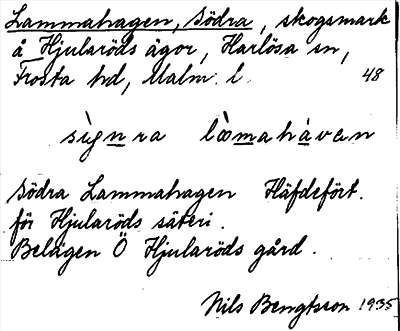 Lammahagen, Södra, skogsmark
å Hjularöds ägor, Harlösa sn,
Frosta hd, Malm. l. 48
sìgnra lòmahàvan
Södra Lammahagen Häfdefört.
för Hjularöds säteri.
Belägen Ö Hjularöds gård.
Nils Bengtsson 1935